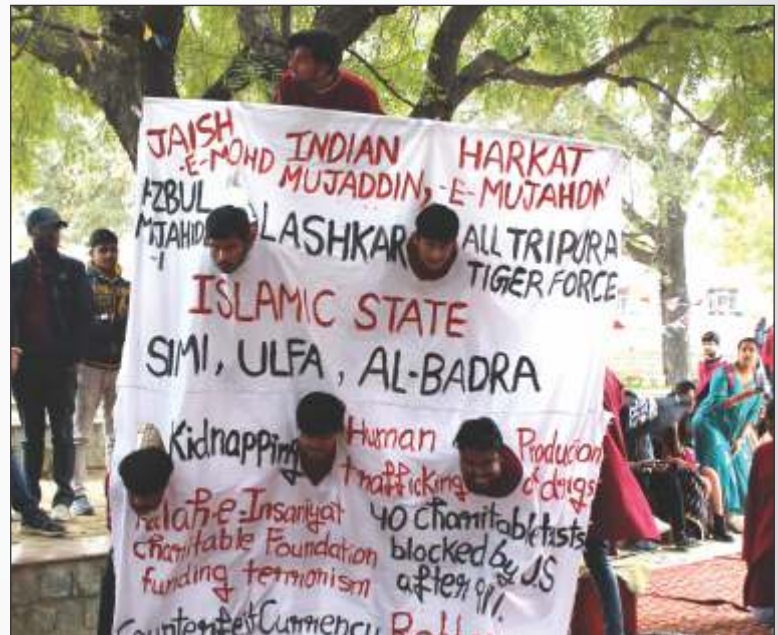 JAISH
-E-MOHD
INDIAN
MUJADDIN,
HARKAT
-E-MUJAHDN
IZBUL
MJAHID
-I
LASHKAR
ALL TRIPURA
TIGER FORCE
ISLAMIC STATE
SIMI, ULFA, AL-BADRA
Kidnapping
Human
trafficking
of drugs
Falah-e-Insaniyat
Charitable Foundation
funding terrorism
40 Charitable
blocked by US
after 9/11.
Counterfeit Currency